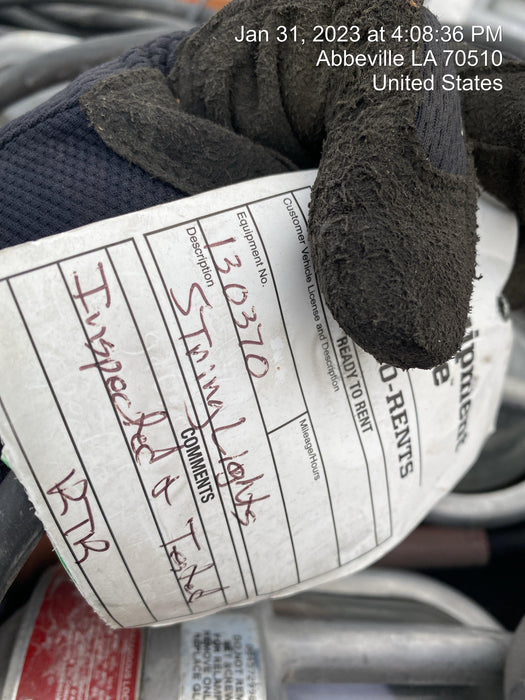 Jan 31, 2023 at 4:08:36 PM
Abbeville LA 70510
United States
O-RENTS
READY TO RENT
Customer Vehicle License and Description
Equipment No.
130370
Mileage/Hours
Description
String Lights
COMMENTS
Inspected & Tested
RTR
DO NOT